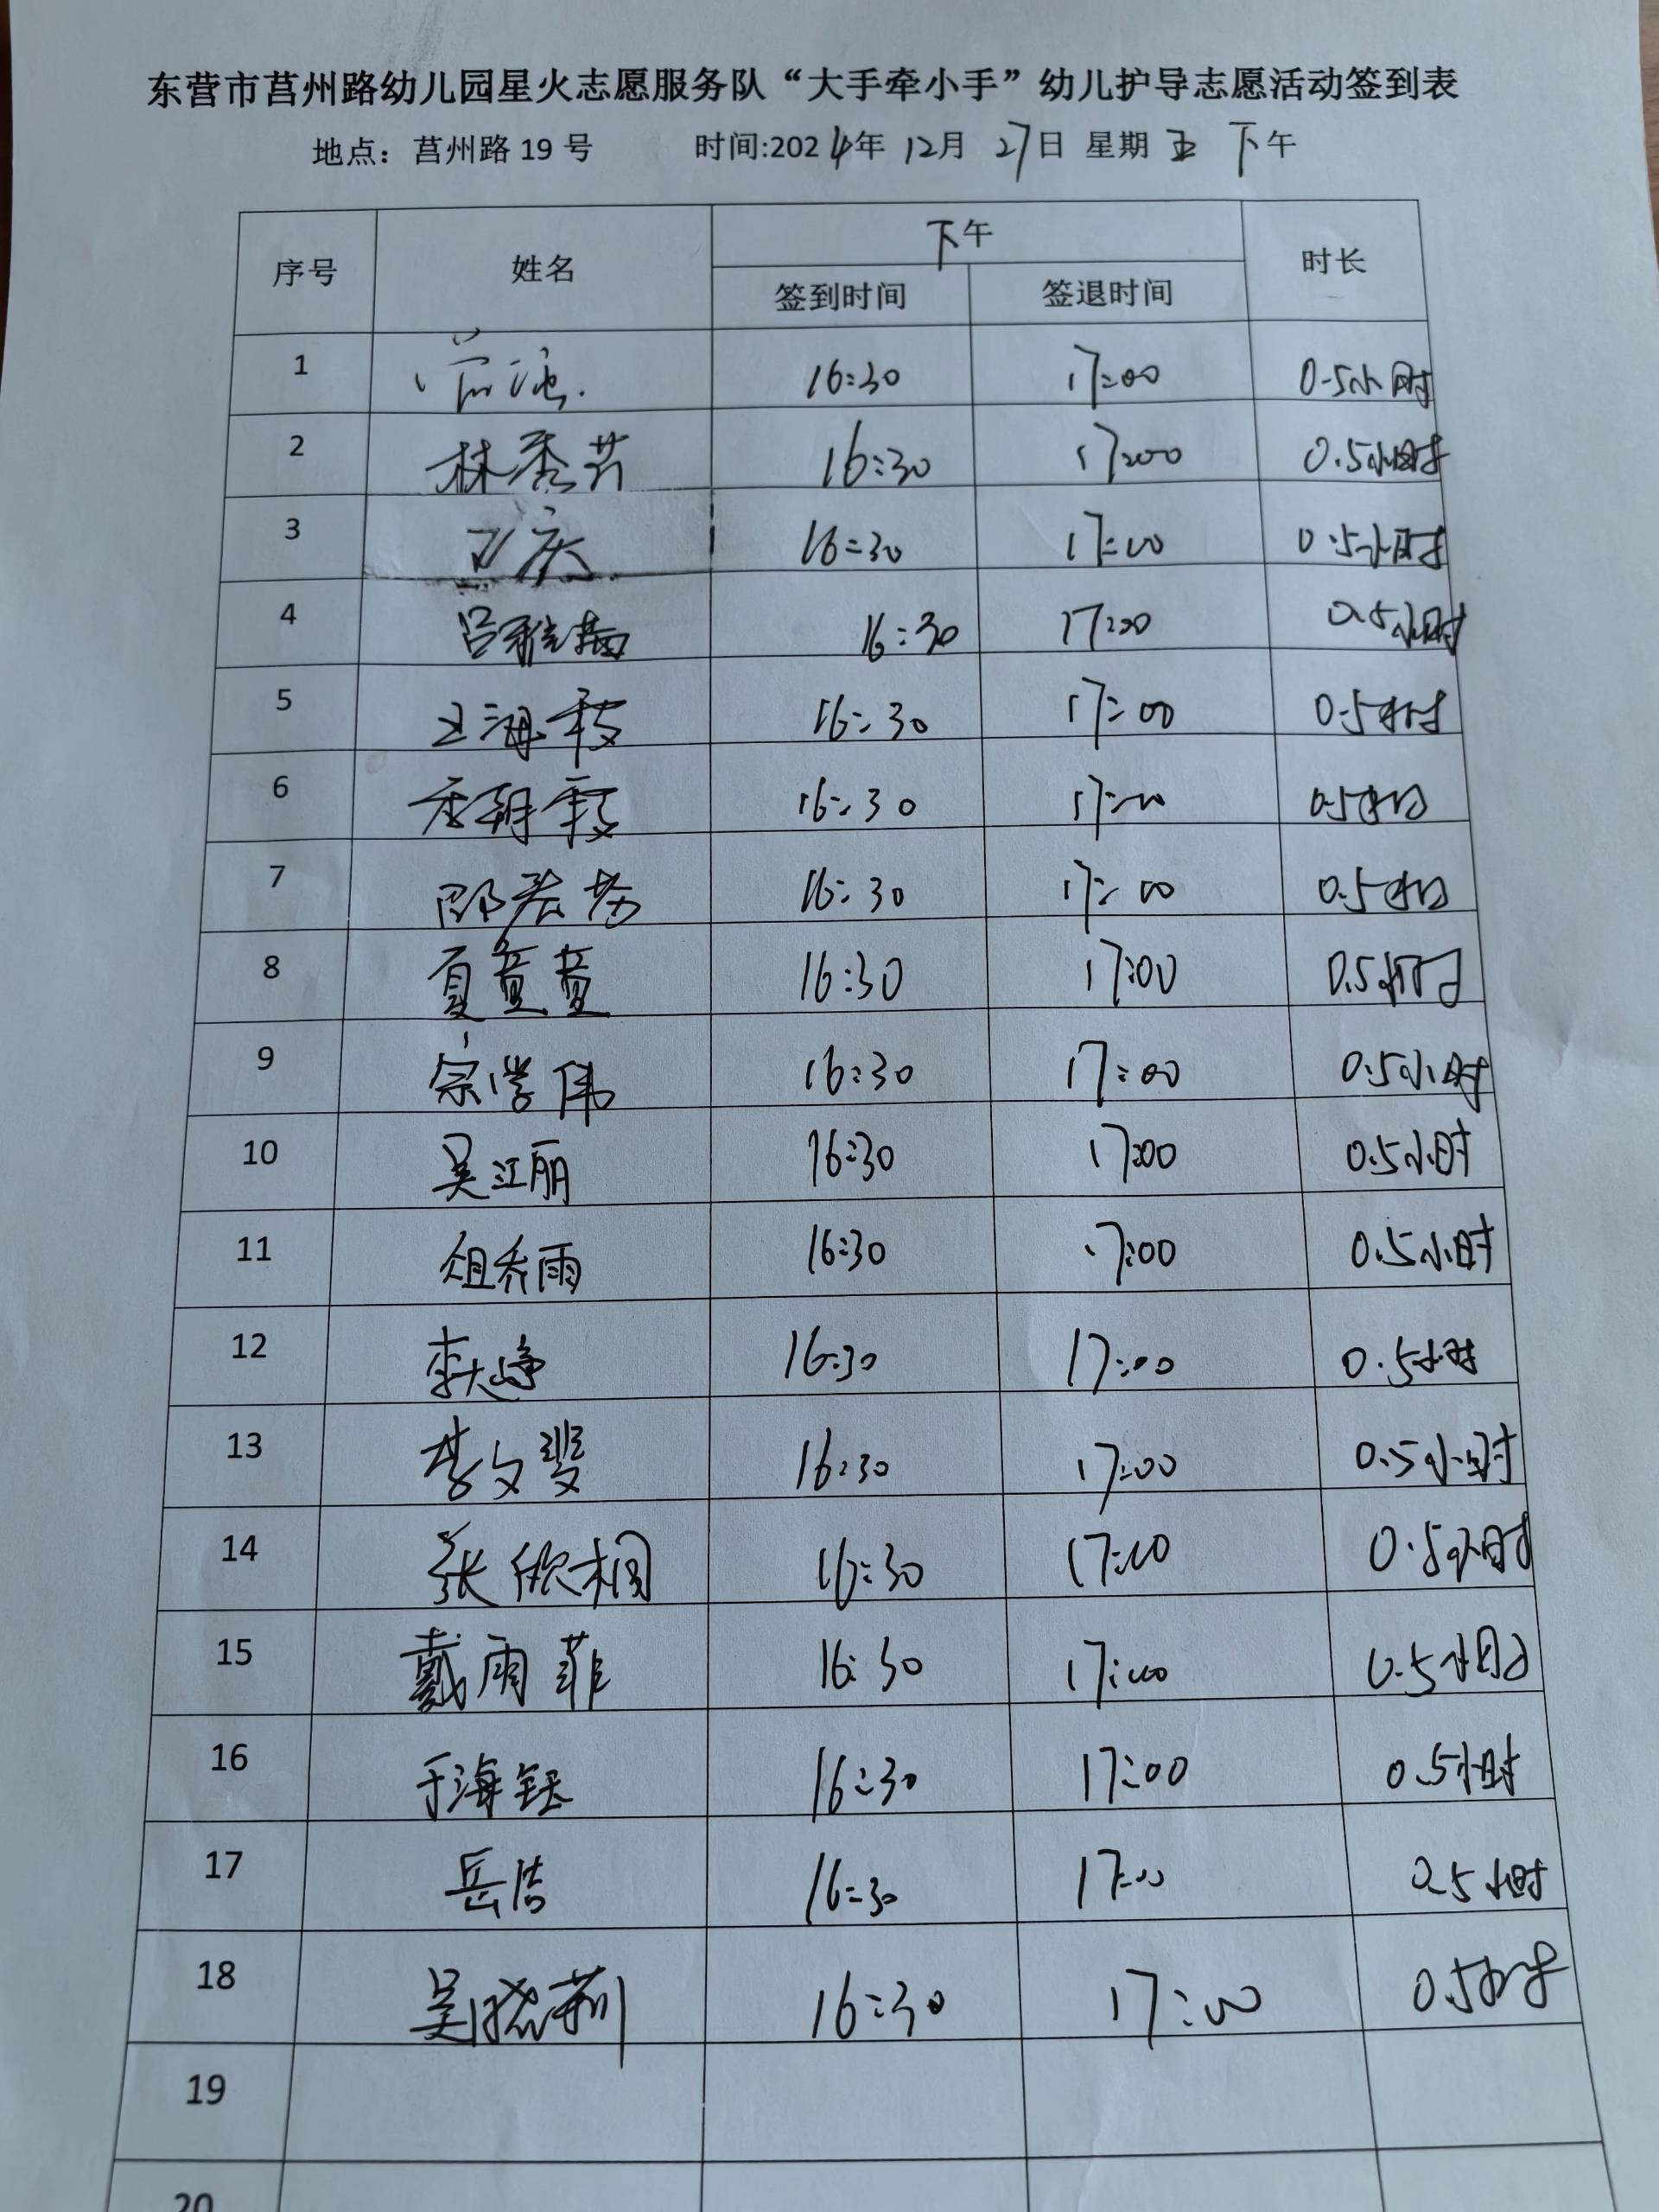 东营市莒州路幼儿园星火志愿服务队“大手牵小手”幼儿护导志愿活动签到表
地点：莒州路 19 号 时间:2024年 12月 27日 星期 五 下午
序号 姓名 下午 时长
签到时间 签退时间
1 16:30 17:00 0.5小时
2 林秀芳 16:30 17:00 0.5小时
3 庆 16:30 17:00 0.5小时
4 吕 16:30 17:00 0.5小时
5 王海霞 16:30 17:00 0.5小时
6 16:30 17:00 0.5小时
7 16:30 17:00 0.5小时
8 夏萱萱 16:30 17:00 0.5小时
9 宗学伟 16:30 17:00 0.5小时
10 吴江丽 16:30 17:00 0.5小时
11 俎乔雨 16:30 17:00 0.5小时
12 李 16:30 17:00 0.5小时
13 李文 16:30 17:00 0.5小时
14 张欣桐 16:30 17:00 0.5小时
15 戴雨菲 16:30 17:00 0.5小时
16 于海钰 16:30 17:00 0.5小时
17 岳洁 16:30 17:00 0.5小时
18 吴晓莉 16:30 17:00 0.5小时
19
20